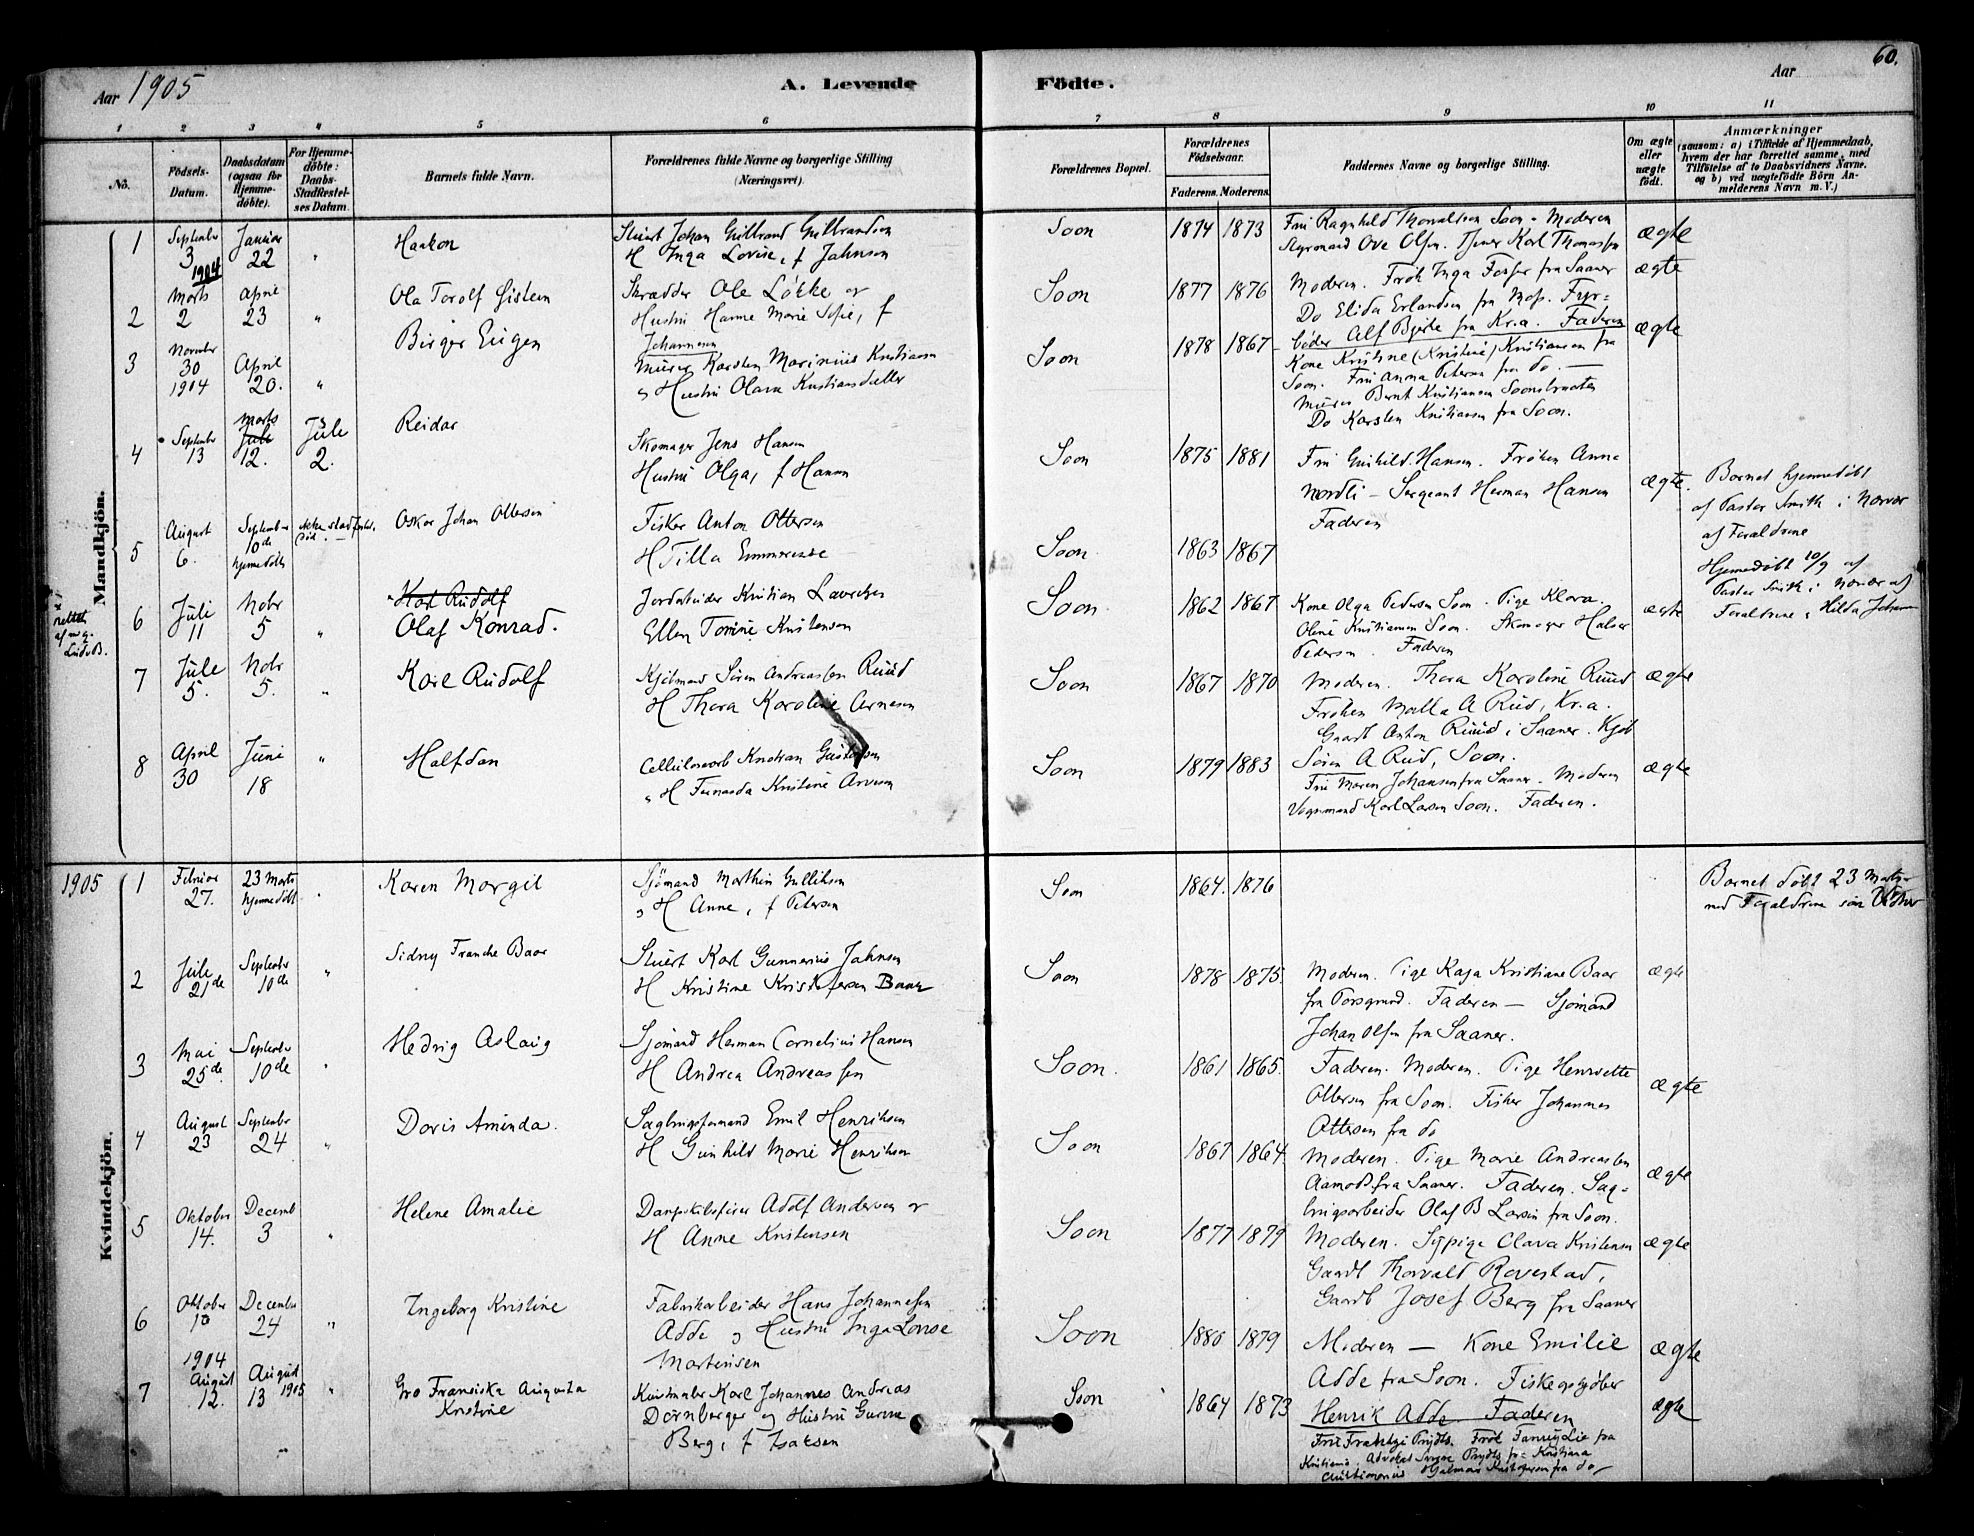 Aar 1905
A. Levende
Födte.
Aar
60.
1 2 3 4 5 6 7 8 9 10 11
No.
Födsels-
Datum.
Daabsdatum
(ogsaa for
Hjemme-
döbte).
For Hjemme-
döbte:
Daabs-
Stadfæstel-
ses Datum.
Barnets fulde Navn.
Forældrenes fulde Navne og borgerlige Stilling
(Næringsvei).
Forældrenes Bopæl.
Forældrenes
Födselsaar.
Faderens. Moderens.
Faddernes Navne og borgerlige Stilling.
Om ægte
eller
uægte
födt.
Anmærkninger
(saasom: a) i Tilfælde af Hjemmedaab,
hvem der har forrettet samme, med
Tilföielse af to Daabsvidners Navne.
og b) ved uægtefödte Börn An-
melderens Navn m. V.)
Mandkjön.
1
September
3
1904
Januar
22
"
Haakon
Stuert Johan Gulbrand Gulbrandsen
H Inga Lovise, f Jahnsen
Soon
1874 1873
Fru Ragnhild Thorvaldsen Soon - Moderen
Styrmand Ove Olsen. Karl Thomassen
ægte
2
Marts
2
April
23
"
Ola Torolf Eistein
Skrædder Ole Løkke og
Hustru Hanne Marie Sofie, f
Johannesen
Soon
1877 1876
Moderen. Frøk Inga fra Saaner
Do Elida Erlandsen fra Moss. Fyr-
bøder Alf Bjerke fra Kr.a. Faderen
ægte
3
November
30
1904
April
20.
"
Birger Eugen
Murer Karsten Marinius Kristiansen
og Hustru Olava Kristiansdatter
Soon
1878 1867
Kone Kristine (Kristine) Kristiansen fra
Soon. Fru Anna Petersen fra do. —
Murer Bernt Kristiansen
Do Karsten Kristiansen fra Soon.
ægte
4
September
13
Marts
Juli
12.
Juli
2.
Reidar
Skomager Jens Hansen
Hustru Olga, f Hansen
Soon
1875 1881
Fru Gunhild Hansen. Frøken Anna
Nordli - Sergeant Herman Hansen
Faderen
ægte.
Barnet hjemmedøbt
af Pastor Smith i Nærvær
af Forældrene
5
August
6.
September
10de
hjemmedöbt
Oskar Johan Ottersen
Fisker Anton Ottersen
H Tilla Emmerense
Soon
1863 1867
Hjemmedöbt 10/9 af
Pastor Smith i Nærvær af
Forældrene & Hilda Johansen
x
rettet
af
6
Juli
11
Nobr
5
"
Karl Rudolf
Olaf Konrad.
Jordarbeider Kristian Lauritzen
Ellen Tomine Kristensen
Soon
1862 1867
Kone Olga Pedersen Soon. Pige Klara.
Oline Kristiansen Soon. Skomager Halvor
Pedersen. Faderen
ægte
7
Juli
5.
Nobr
5.
"
Karl Rudolf
Kjøbmand Søren Andreassen Ruud
H Thora Karoline Arnesen
Soon
1867 1870
Moderen. Thora Karoline Ruud
Frøken Malla A Rud, Kr.a.
Gaardb Anton Ruud i Saaner. Kjøb
Søren A Rud, Soon.
ægte
8
April
30
Juni
18
"
Halfdan
Cellulosearb Kristian Gustafsen
& H Fernanda Kristine Arnesen
Soon
1879 1883
Fru Maren Johansen fra Saaner. Moderen
Vognmand Karl Larsen Soon. Faderen.
ægte
Kvindekjön.
1905
1
Februar
27.
23 Marts
hjemmedöbt
"
Karen Margit
Sjømand Marthin Gulliksen
og H Anne, f Petersen
Soon
1864. 1876
Barnet døbt 23 Marts
med Forældrene som Vidner
2
Juli
21de
September
10de
"
Sidny Francke Baar
Stuert Karl Gunnerius Jahnsen
H Kristine Kristofersen Baar
Soon
1878 1875.
Moderen. Pige Kaja Kristiane Baar
fra Porsgrund. Faderen — Sjømand
Johan Olsen fra Saaner.
ægte
3
Mai
25de
September
10de
"
Hedvig Aslaug
Sjømand Herman Cornelius Hansen
H Andrea Andreassen
Soon.
1861 1865.
Faderen. Moderen. Pige Henriette
Ottersen fra Soon. Fisker Johannes
Ottersen fra do
ægte
4
August
23
September
24
"
Doris Aminda.
Sagbrugsformand Emil Henriksen
H Gunhild Marie Henriksen
Soon
1867 1864.
Moderen. Pige Marie Andreassen
Aamodt fra Saaner. Faderen. Sag-
brugsarbeider Olaf B Larsen fra Soon.
ægte
5
Oktober
14.
Decemb
3
"
Helene Amalie
Dampskibsfører Adolf Andersen og
H Anne Kristensen
Soon
1877 1879
Moderen. Sypige Clara Kristensen
Gaardb Thorvald Rovestad,
Gaardb Josef Berg fra Saaner
ægte
6
Oktober
10
December
24
"
Ingeborg Kristine
Fabrikarbeider Hans Johannesen
Adde og Hustru Inga Lovise
Martinsen
Soon
1880 1879
Moderen — Kone Emilie
Adde fra Soon. Fiskeopkjøber
Henrik Adde. Faderen
ægte
7
1904
August
12.
August
13 1905
"
Gro Fransiska Augusta
Kristine
Kunstmaler Karl Johannes Andreas
Dörnberger og Hustru Gunna
Berg, f Isaksen
Soon
1864 1873
Frøk Fanny Lie fra
Kristiania. Advokat fra Kristiania
Hjalmar Kristofersen fra do
ægte